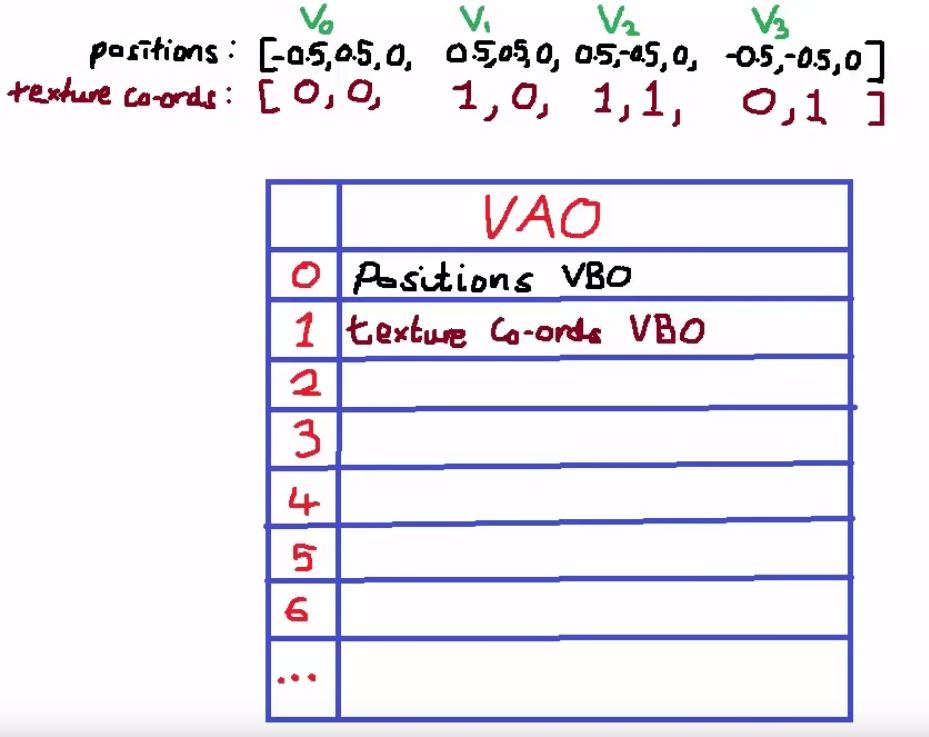 V₀ V₁ V₂ V₃
positions: [-0.5,0.5,0, 0.5,0.5,0, 0.5,-0.5,0, -0.5,-0.5,0]
texture co-ords: [0,0, 1,0, 1,1, 0,1]
VAO
0 Positions VBO
1 texture co-ords VBO
2
3
4
5
6
...